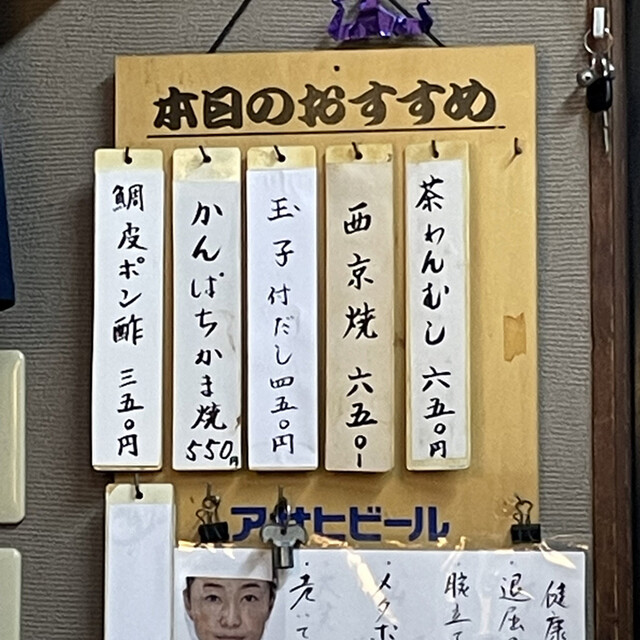 本日のおすすめ
茶わんむし 六五〇円
西京焼 六五〇ー
玉子付だし 四五〇円
かんぱちかま焼 550円
鯛皮ポン酢 三五〇円
アサヒビール
健康
・退屈
・腕立
・メタボ
・老いて